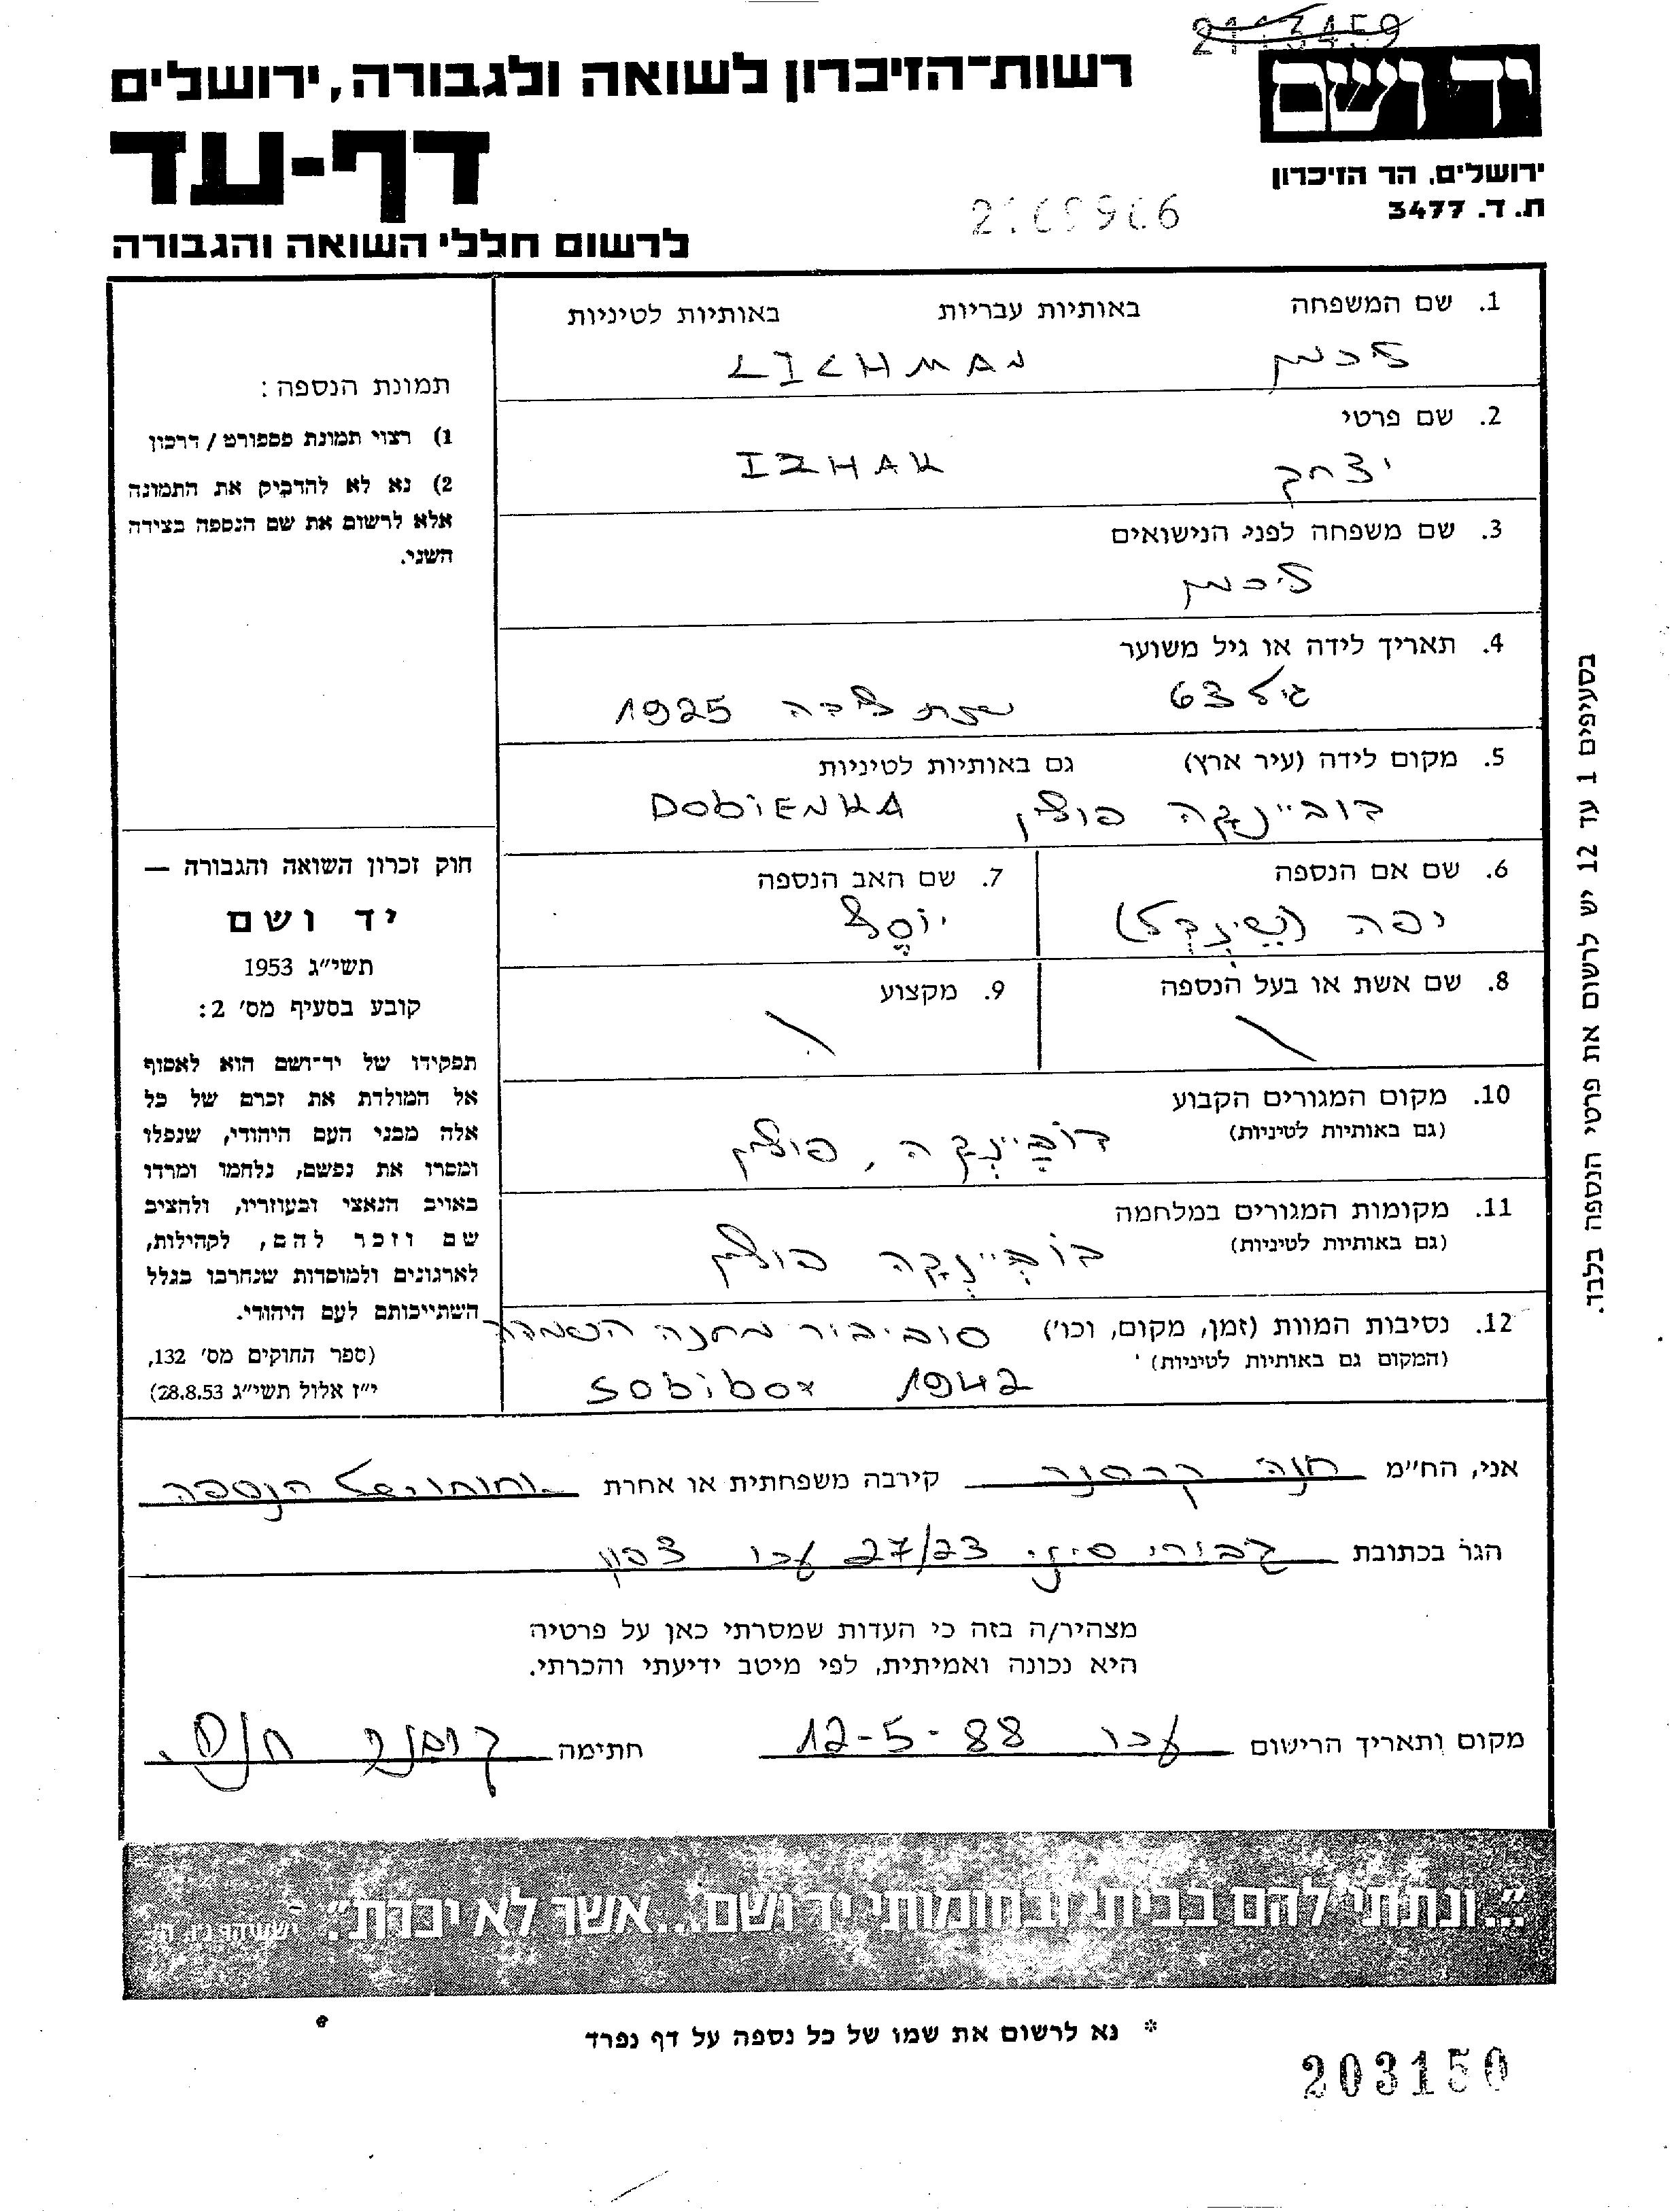 2113459
יד ושם
רשות־הזיכרון לשואה ולגבורה, ירושלים
דף-עד
ירושלים, הר הזיכרון
ת. ד. 3477
לרשום חללי השואה והגבורה
1. שם המשפחה באותיות עבריות באותיות לטיניות
ליכמן LICHMAN
2. שם פרטי
יצחק IZHAK
3. שם משפחה לפני הנישואים
ליכמן
4. תאריך לידה או גיל משוער
גיל 63 שנת לידה 1925
5. מקום לידה (עיר ארץ) גם באותיות לטיניות
דוביינקה פולין DOBIENKA
6. שם אם הנספה
יפה (שיינדל)
7. שם האב הנספה
יוסל
8. שם אשת או בעל הנספה
9. מקצוע
10. מקום המגורים הקבוע
(גם באותיות לטיניות)
דוביינקה, פולין
11. מקומות המגורים במלחמה
(גם באותיות לטיניות)
דוביינקה פולין
12. נסיבות המוות (זמן, מקום, וכו') סוביבור מחנה השמדה
(המקום גם באותיות לטיניות)
Sobibor 1942
תמונת הנספה:
1) רצוי תמונת פספורט / דרכון
2) נא לא להדביק את התמונה
אלא לרשום את שם הנספה בצידה
השני.
חוק זכרון השואה והגבורה —
יד ושם
תשי״ג 1953
קובע בסעיף מס' 2:
תפקידו של יד־ושם הוא לאסוף
אל המולדת את זכרם של כל
אלה מבני העם היהודי, שנפלו
ומסרו את נפשם, נלחמו ומרדו
באויב הנאצי ובעוזריו, ולהציב
שם וזכר להם, לקהילות,
לארגונים ולמוסדות שנחרבו בגלל
השתייכותם לעם היהודי.
(ספר החוקים מס' 132,
י״ז אלול תשי״ג 28.8.53)
בסעיפים 1 עד 12 יש לרשום את פרטי הנספה בלבד.
אני, הח״מ חנה קרסנר קירבה משפחתית או אחרת אחותו של הנספה
הגר בכתובת גבורי סיני 27/23 עכו צפון
מצהיר/ה בזה כי העדות שמסרתי כאן על פרטיה
היא נכונה ואמיתית, לפי מיטב ידיעתי והכרתי.
מקום ותאריך הרישום עכו 12-5-88 חתימה
״...ונתתי להם בביתי ובחומותי יד ושם...אשר לא יכרת״. ישעיהו נ״ו, ה'
* נא לרשום את שמו של כל נספה על דף נפרד
203150